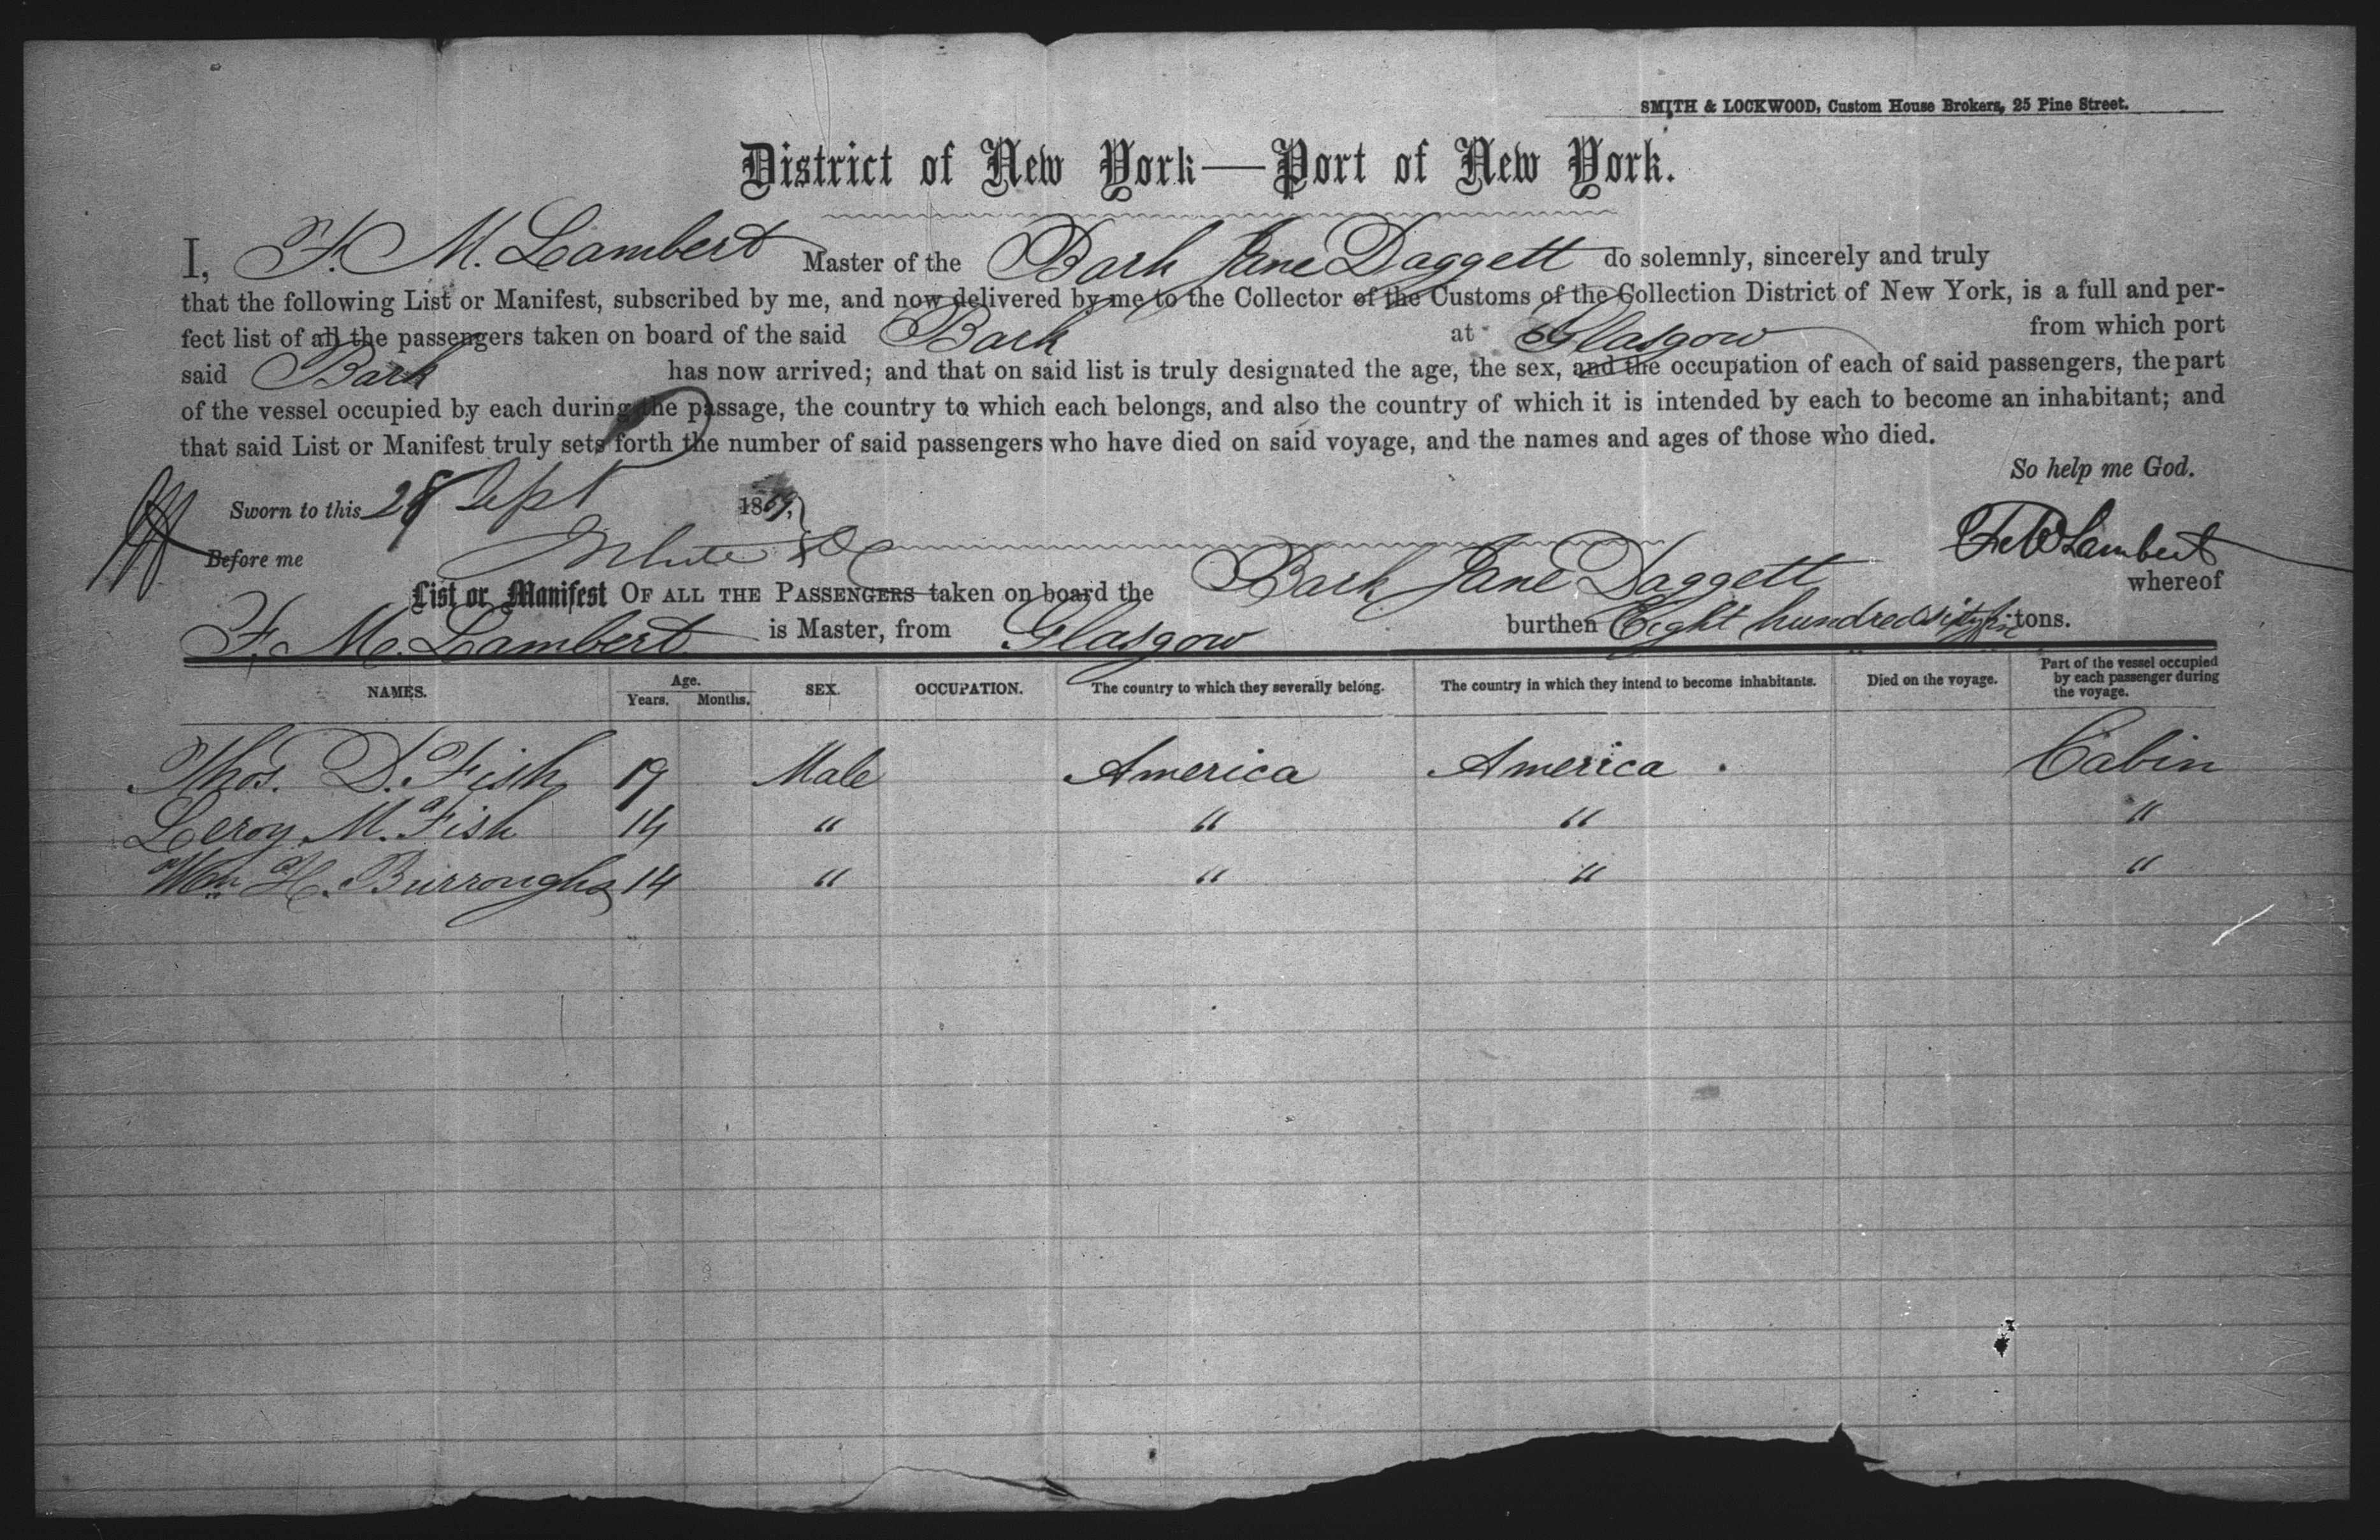 SMITH & LOCKWOOD, Custom House Brokers, 25 Pine Street.
District of New York—Port of New York.
I, F. M. Lambert Master of the Bark Jane Daggett do solemnly, sincerely and truly
that the following List or Manifest, subscribed by me, and now delivered by me to the Collector of the Customs of the Collection District of New York, is a full and per-
fect list of all the passengers taken on board of the said Bark at Glasgow from which port
said Bark has now arrived; and that on said list is truly designated the age, the sex, and the occupation of each of said passengers, the part
of the vessel occupied by each during the passage, the country to which each belongs, and also the country of which it is intended by each to become an inhabitant; and
that said List or Manifest truly sets forth the number of said passengers who have died on said voyage, and the names and ages of those who died.
So help me God.
Sworn to this 28 Sept 1869,
Before me Lambert
List or Manifest OF ALL THE PASSENGERS taken on board the Bark Jane Daggett whereof
F. M. Lambert is Master, from Glasgow burthen Eight hundred tons.
NAMES. Age. Years. Months. SEX. OCCUPATION. The country to which they severally belong. The country in which they intend to become inhabitants. Died on the voyage. Part of the vessel occupied by each passenger during the voyage.
Thos. D. Fish 19 Male America America Cabin
Leroy M. Fish 14 " " " "
Wm H. Burroughs 14 " " " "